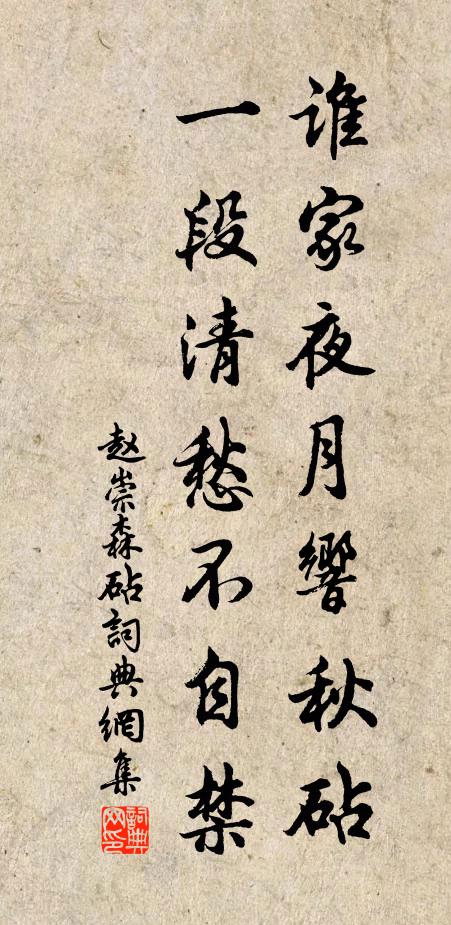 誰家夜月響秋砧
一段清愁不自禁
赵崇森砧詞典網集
詞典网印